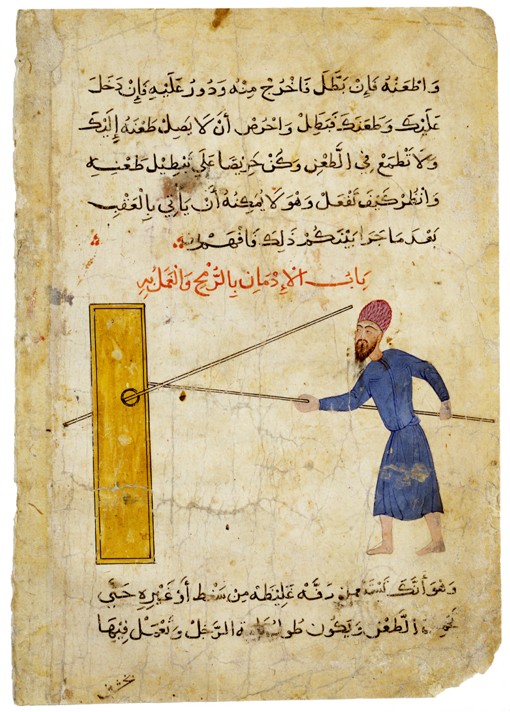 وَاطْعَنْهُ فَإِنْ بَطَّلَ فَاخْرُجْ مِنْهُ وَدُورُ عَلَيْهِ فَإِنْ دَخَلَ
عَلَيْكَ وَطَعَنَكَ فَبَطِلْ وَاحْرُصْ أَنْ لَا يَصِلْ طَعْنُهُ إِلَيْكَ
وَلَا تَطْمَعْ فِي الطَّعْنِ وَكُنْ حَرِيصًا عَلَى تَبْطِيلِ طَعْنِهِ
وَانْظُرْ كَيْفَ تَفْعَلْ وَهُوَ لَا يُمْكِنُهُ أَنْ يَأْتِي بِالْعَقْبِ
بَعْدَ مَا جَرَا بَيْنَكُمْ ذَلِكَ فَافْهَمْ
بَابُ الْإِدْمَانِ بِالرُّمْحِ وَالْعَمَلُ بِهِ
وَهُوَ أَنَّكَ دَفَّه غَلِيظَه مِنْ سَنْط أَوْ غَيْرِهِ حَتَّى
الطَّعْنِ وَيَكُونُ طُولُ الرَّجُلْ وَتَعْمَلْ فِيهَا